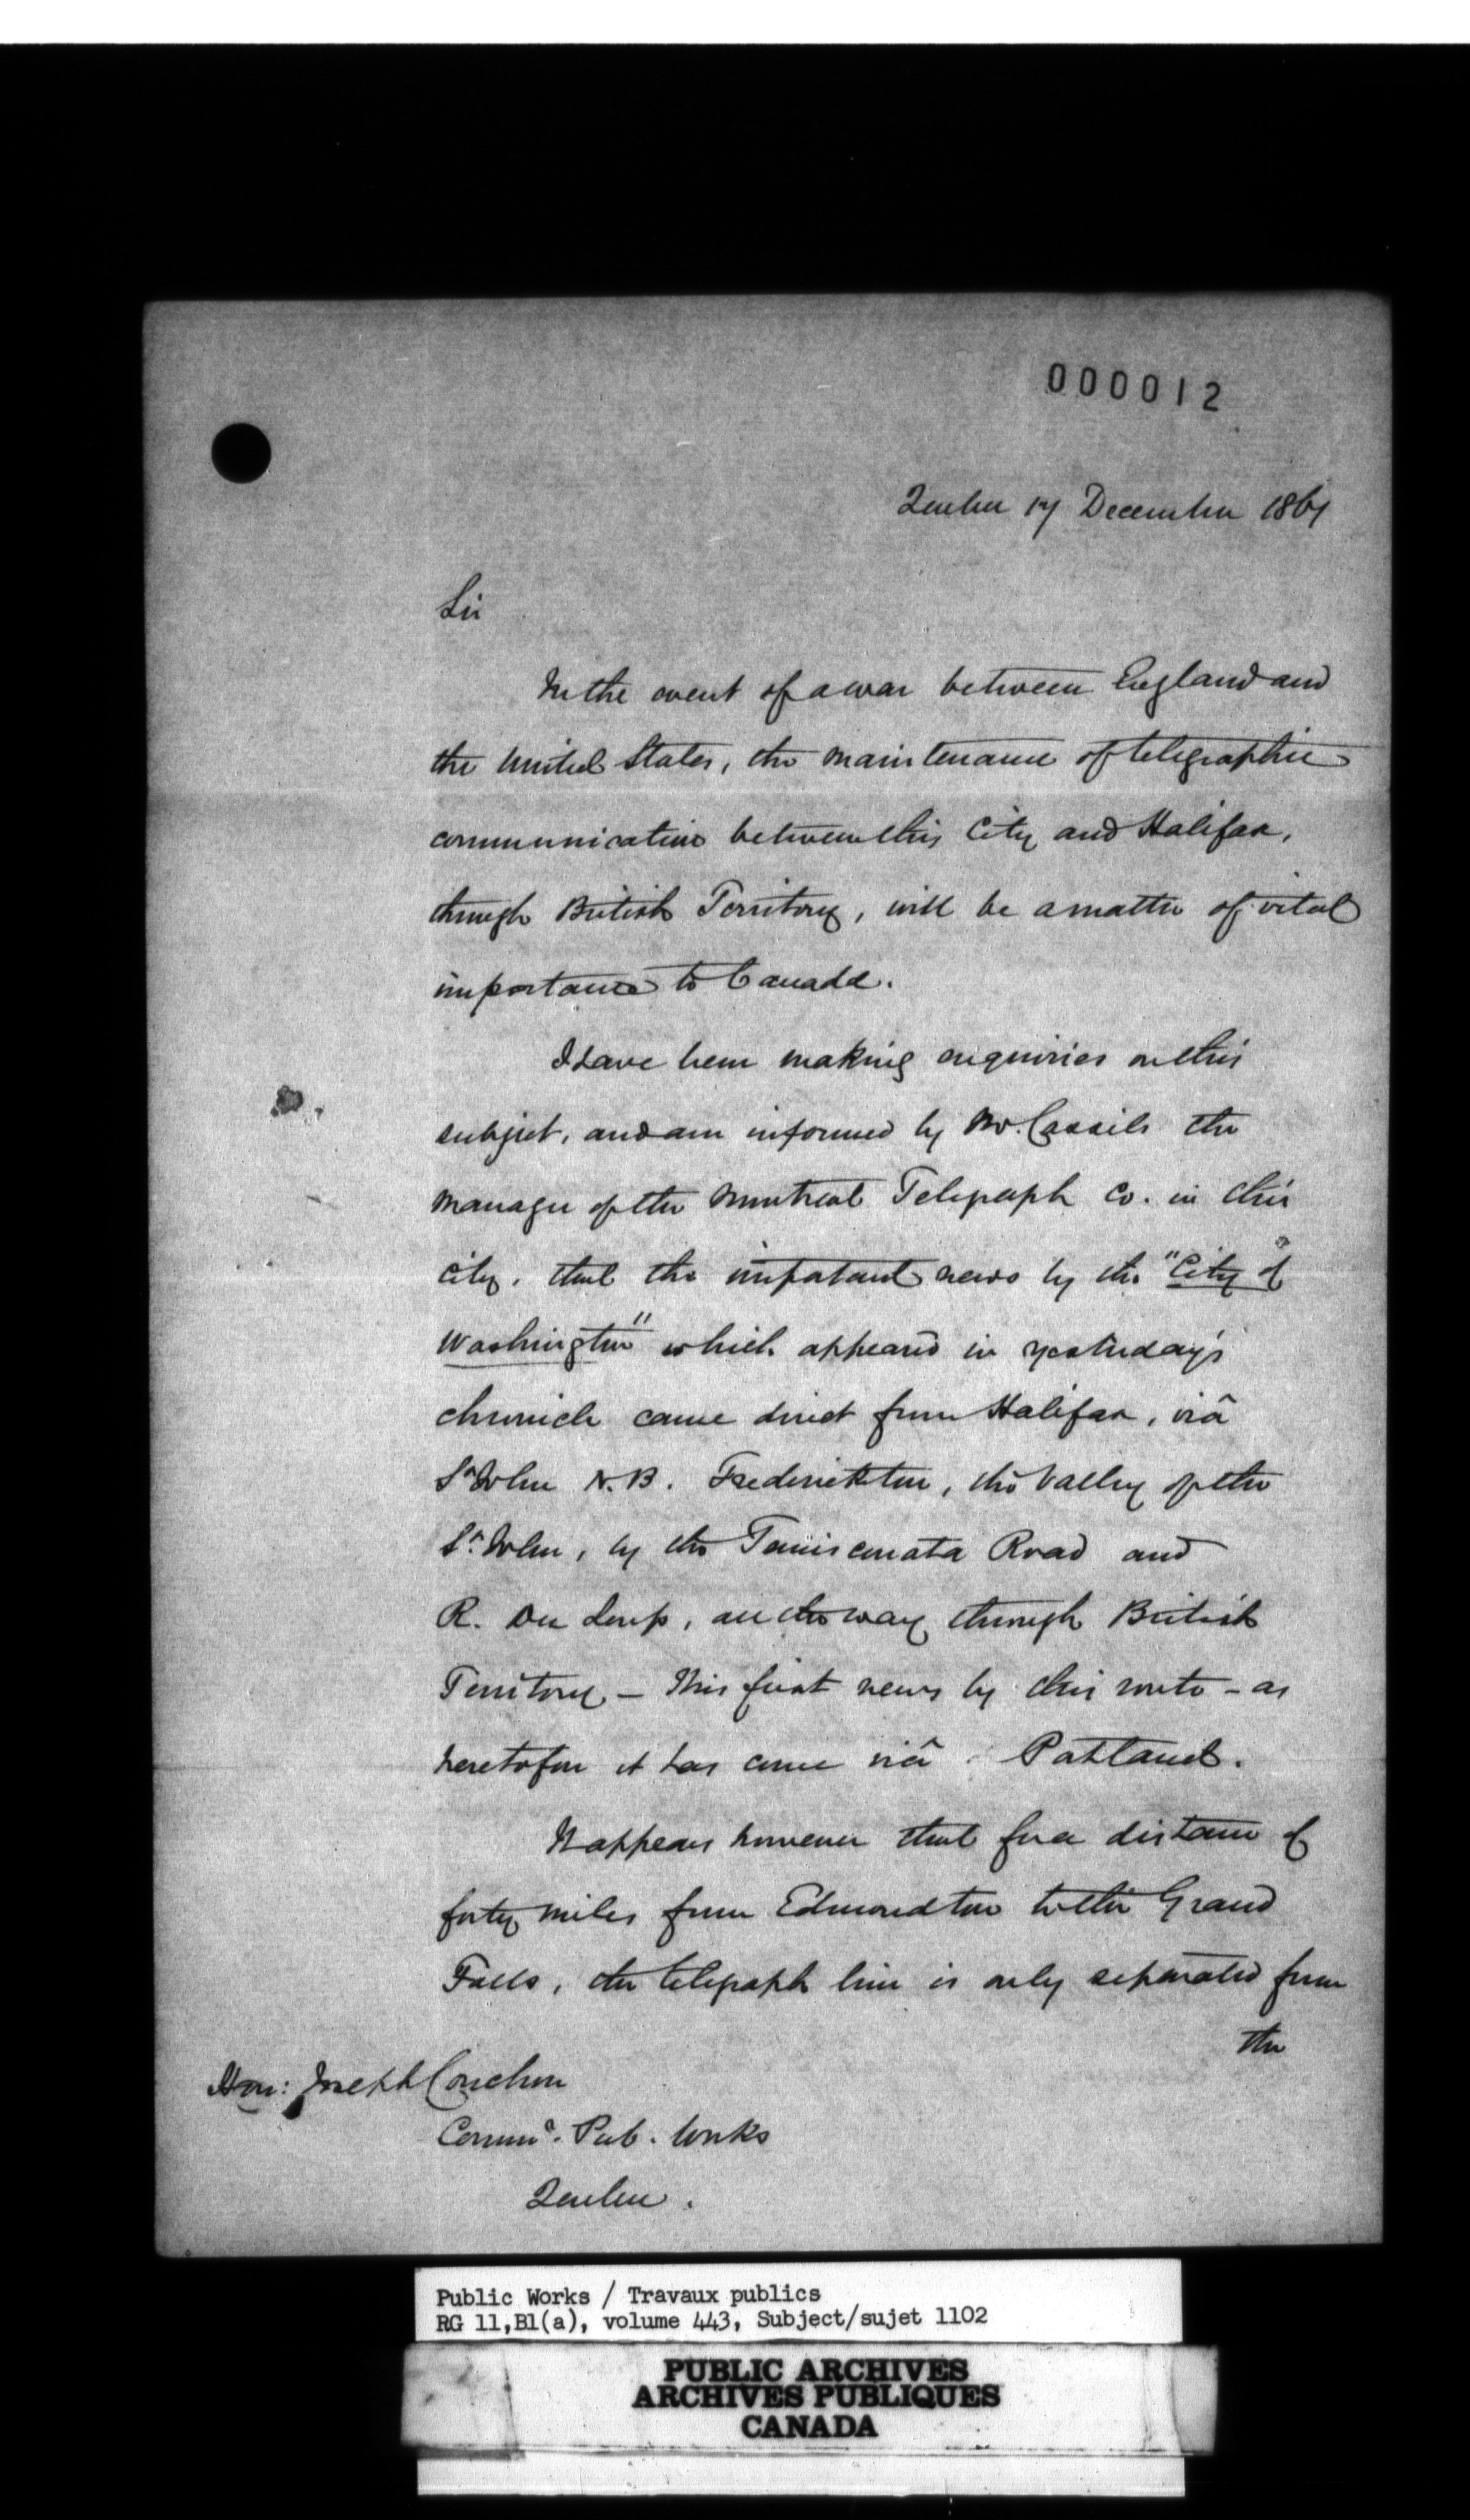 000012
Quebec 17 December 1861
Sir
In the event of a war between England and
the United States, the maintenance of telegraphic
communication between this City and Halifax,
through British Territory, will be a matter of vital
importance to Canada.
I have been making enquiries on this
subject, and am informed by Mr. Cassils the
manager of the Montreal Telegraph Co. in this
city, that the important news by the "City of
Washington" which appeared in yesterday's
chronicle came direct from Halifax, viâ
St John N.B. Frederickton, the Valley of the
St. John, by the Temiscouata Road and
R. Du Loup, all the way through British
Territory – This first news by this route – as
heretofore it has come viâ Portland.
It appears however that for a distance of
forty miles from Edmondton to the Grand
Falls, the telegraph line is only separated from
the
Hon: Joseph Cauchon
Commr. Pub. Works
Quebec.
Public Works / Travaux publics
RG 11,B1(a), volume 443, Subject/sujet 1102
PUBLIC ARCHIVES
ARCHIVES PUBLIQUES
CANADA